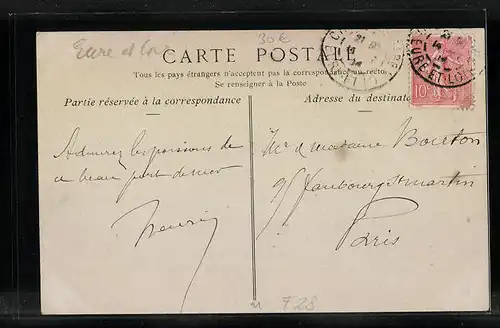 Eure et Loir
30€
CARTE POSTALE
Tous les pays étrangers n'acceptent pas la correspondance au recto
Se renseigner à la Poste
Partie réservée à la correspondance
Adresse du destinata
EURE-ET-LOIR
10
Admirez les poissons de
ce beau port de mer
Henri
Mr & madame Bouton
95 faubourg St martin
Paris
F28